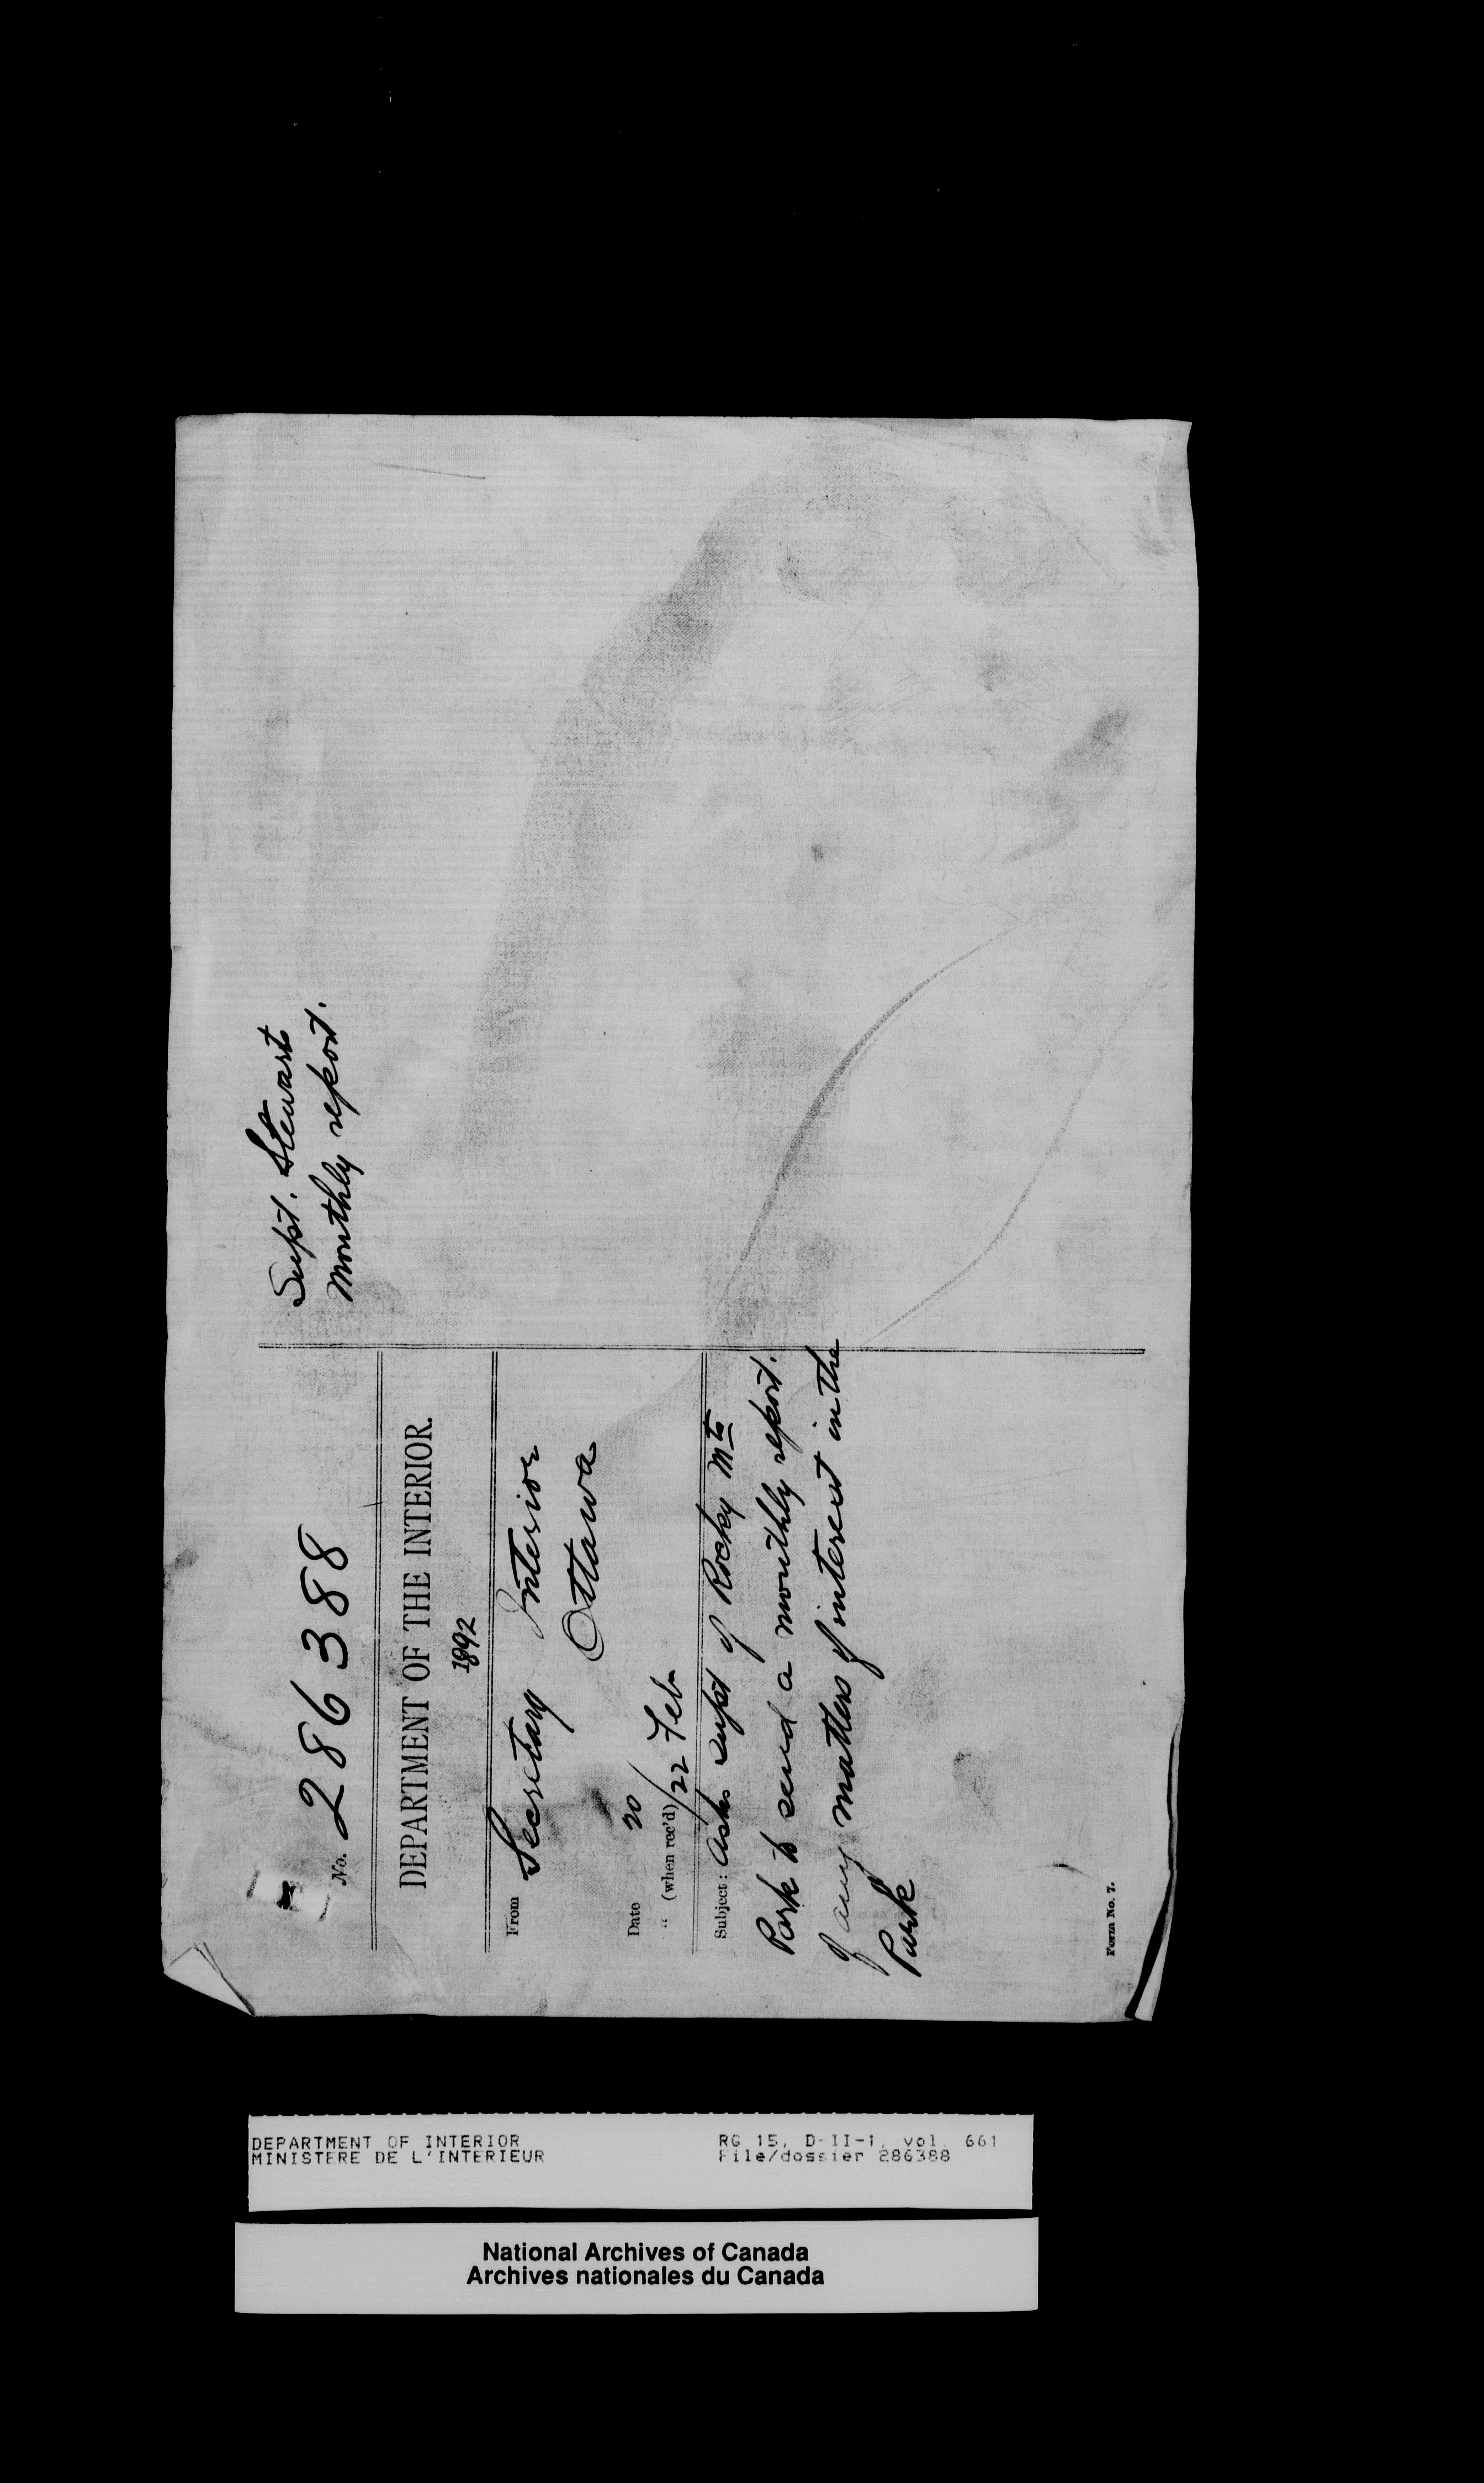 No. 286388
DEPARTMENT OF THE INTERIOR.
1892
From Secretary Interior
Ottawa
Date 20
" (when rec'd) /22 Feb
Subject: Asks Supt of Rocky Mts
Park to send a monthly report.
of any matters of interest in the
Park
Form No. 7.
Supt. Stewarts
Monthly report.
DEPARTMENT OF INTERIOR
MINISTERE DE L'INTERIEUR
RG 15, D-II-1, vol. 661
File/dossier 286388
National Archives of Canada
Archives nationales du Canada